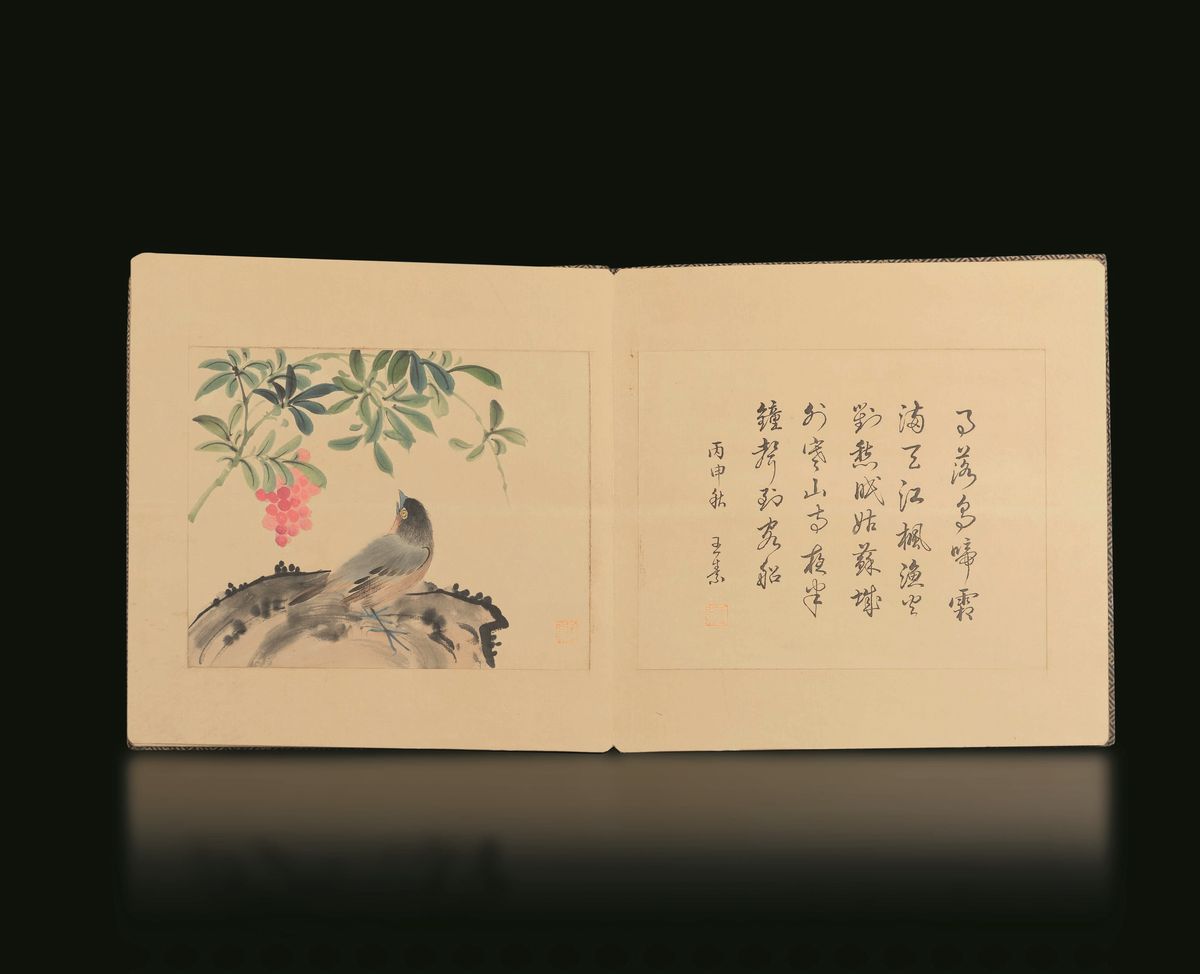 月落烏啼霜
滿天江楓漁火
對愁眠姑蘇城
外寒山寺夜半
鐘聲到客船
丙申秋 王素